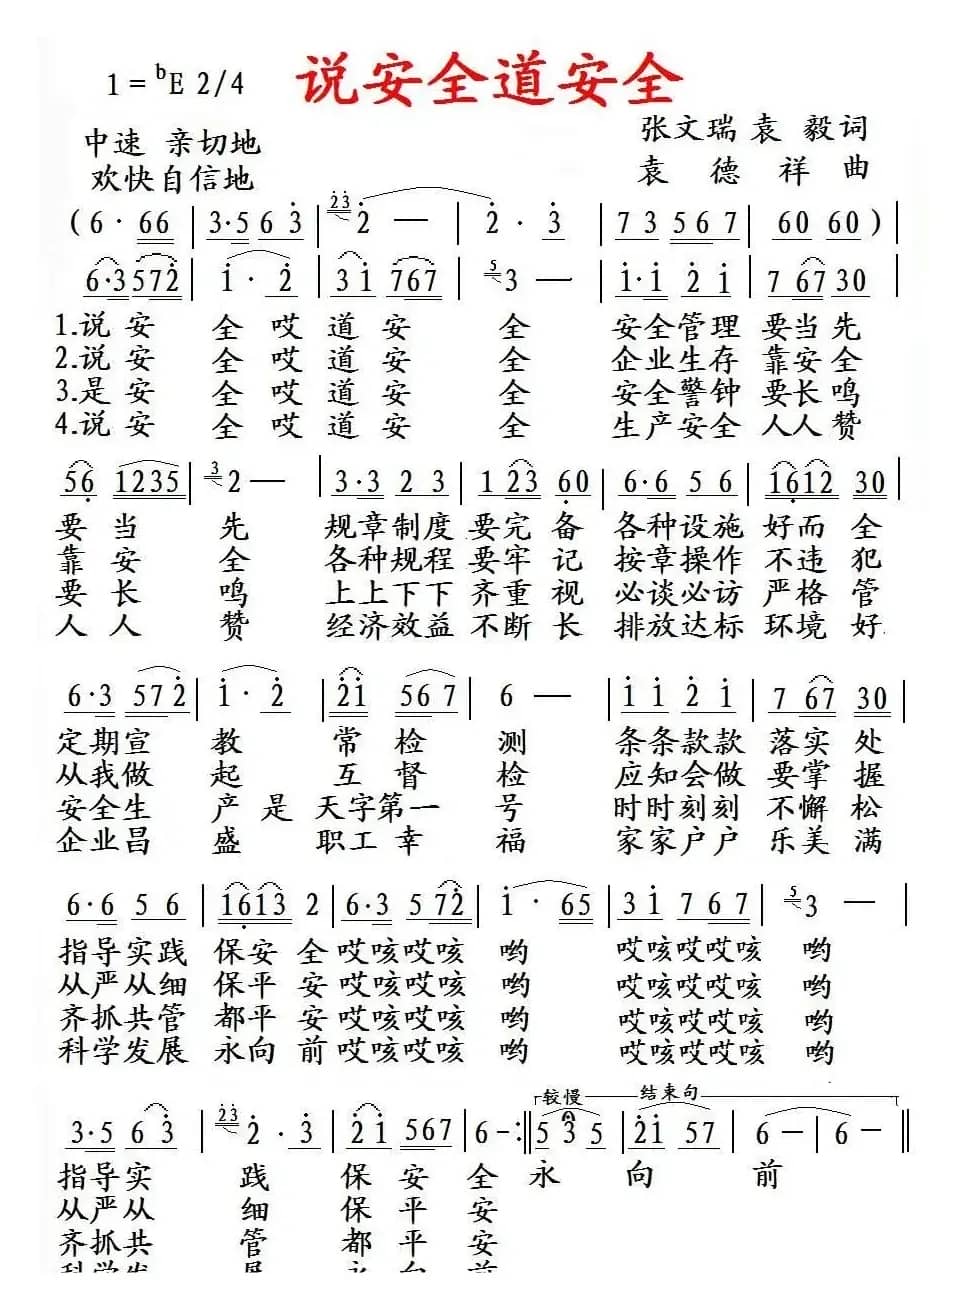 说安全道安全
1=ᵇE 2/4
中速 亲切地
欢快自信地
张文瑞 袁 毅词
袁 德 祥 曲
(6· 66 | 3·5 6 3 | 23 2 — | 2 · 3 | 7 3 5 6 7 | 60 60 ) |
6·3 572 | 1 · 2 | 3 1 767 | 5 3 — | 1·1 2 1 | 7 67 30 |
1.说 安 全 哎 道 安 全 安全管理 要当先
2.说 安 全 哎 道 安 全 企业生存 靠安全
3.是 安 全 哎 道 安 全 安全警钟 要长鸣
4.说 安 全 哎 道 安 全 生产安全 人人赞
56 1235 | 3 2 — | 3·3 2 3 | 1 23 60 | 6·6 5 6 | 1612 30 |
要 当 先 规章制度 要完备 各种设施 好而全
靠 安 全 各种规程 要牢记 按章操作 不违犯
要 长 鸣 上上下下 齐重视 必谈必访 严格管
人 人 赞 经济效益 不断长 排放达标 环境好
6·3 572 | 1 · 2 | 21 56 7 | 6 — | 1 1 2 1 | 7 67 30 |
定期宣 教 常 检 测 条条款款 落实处
从我做 起 互 督 检 应知会做 要掌握
安全生 产 是 天字第一 号 时时刻刻 不懈松
企业昌 盛 职工 幸 福 家家户户 乐美满
6·6 5 6 | 1613 2 | 6·3 5 72 | 1 · 65 | 3 1 7 6 7 | 5 3 — |
指导实践 保安全 哎咳哎咳 哟 哎咳哎哎咳 哟
从严从细 保平安 哎咳哎咳 哟 哎咳哎哎咳 哟
齐抓共管 都平安 哎咳哎咳 哟 哎咳哎哎咳 哟
科学发展 永向前 哎咳哎咳 哟 哎咳哎哎咳 哟
较慢 结束句
3·5 6 3 | 23 2 · 3 | 2 1 567 | 6 — :‖ 5 3 5 | 21 57 | 6 — | 6 — ‖
指导实 践 保 安 全 永 向 前
从严从 细 保 平 安
齐抓共 管 都 平 安
科学发 展 永 向 前